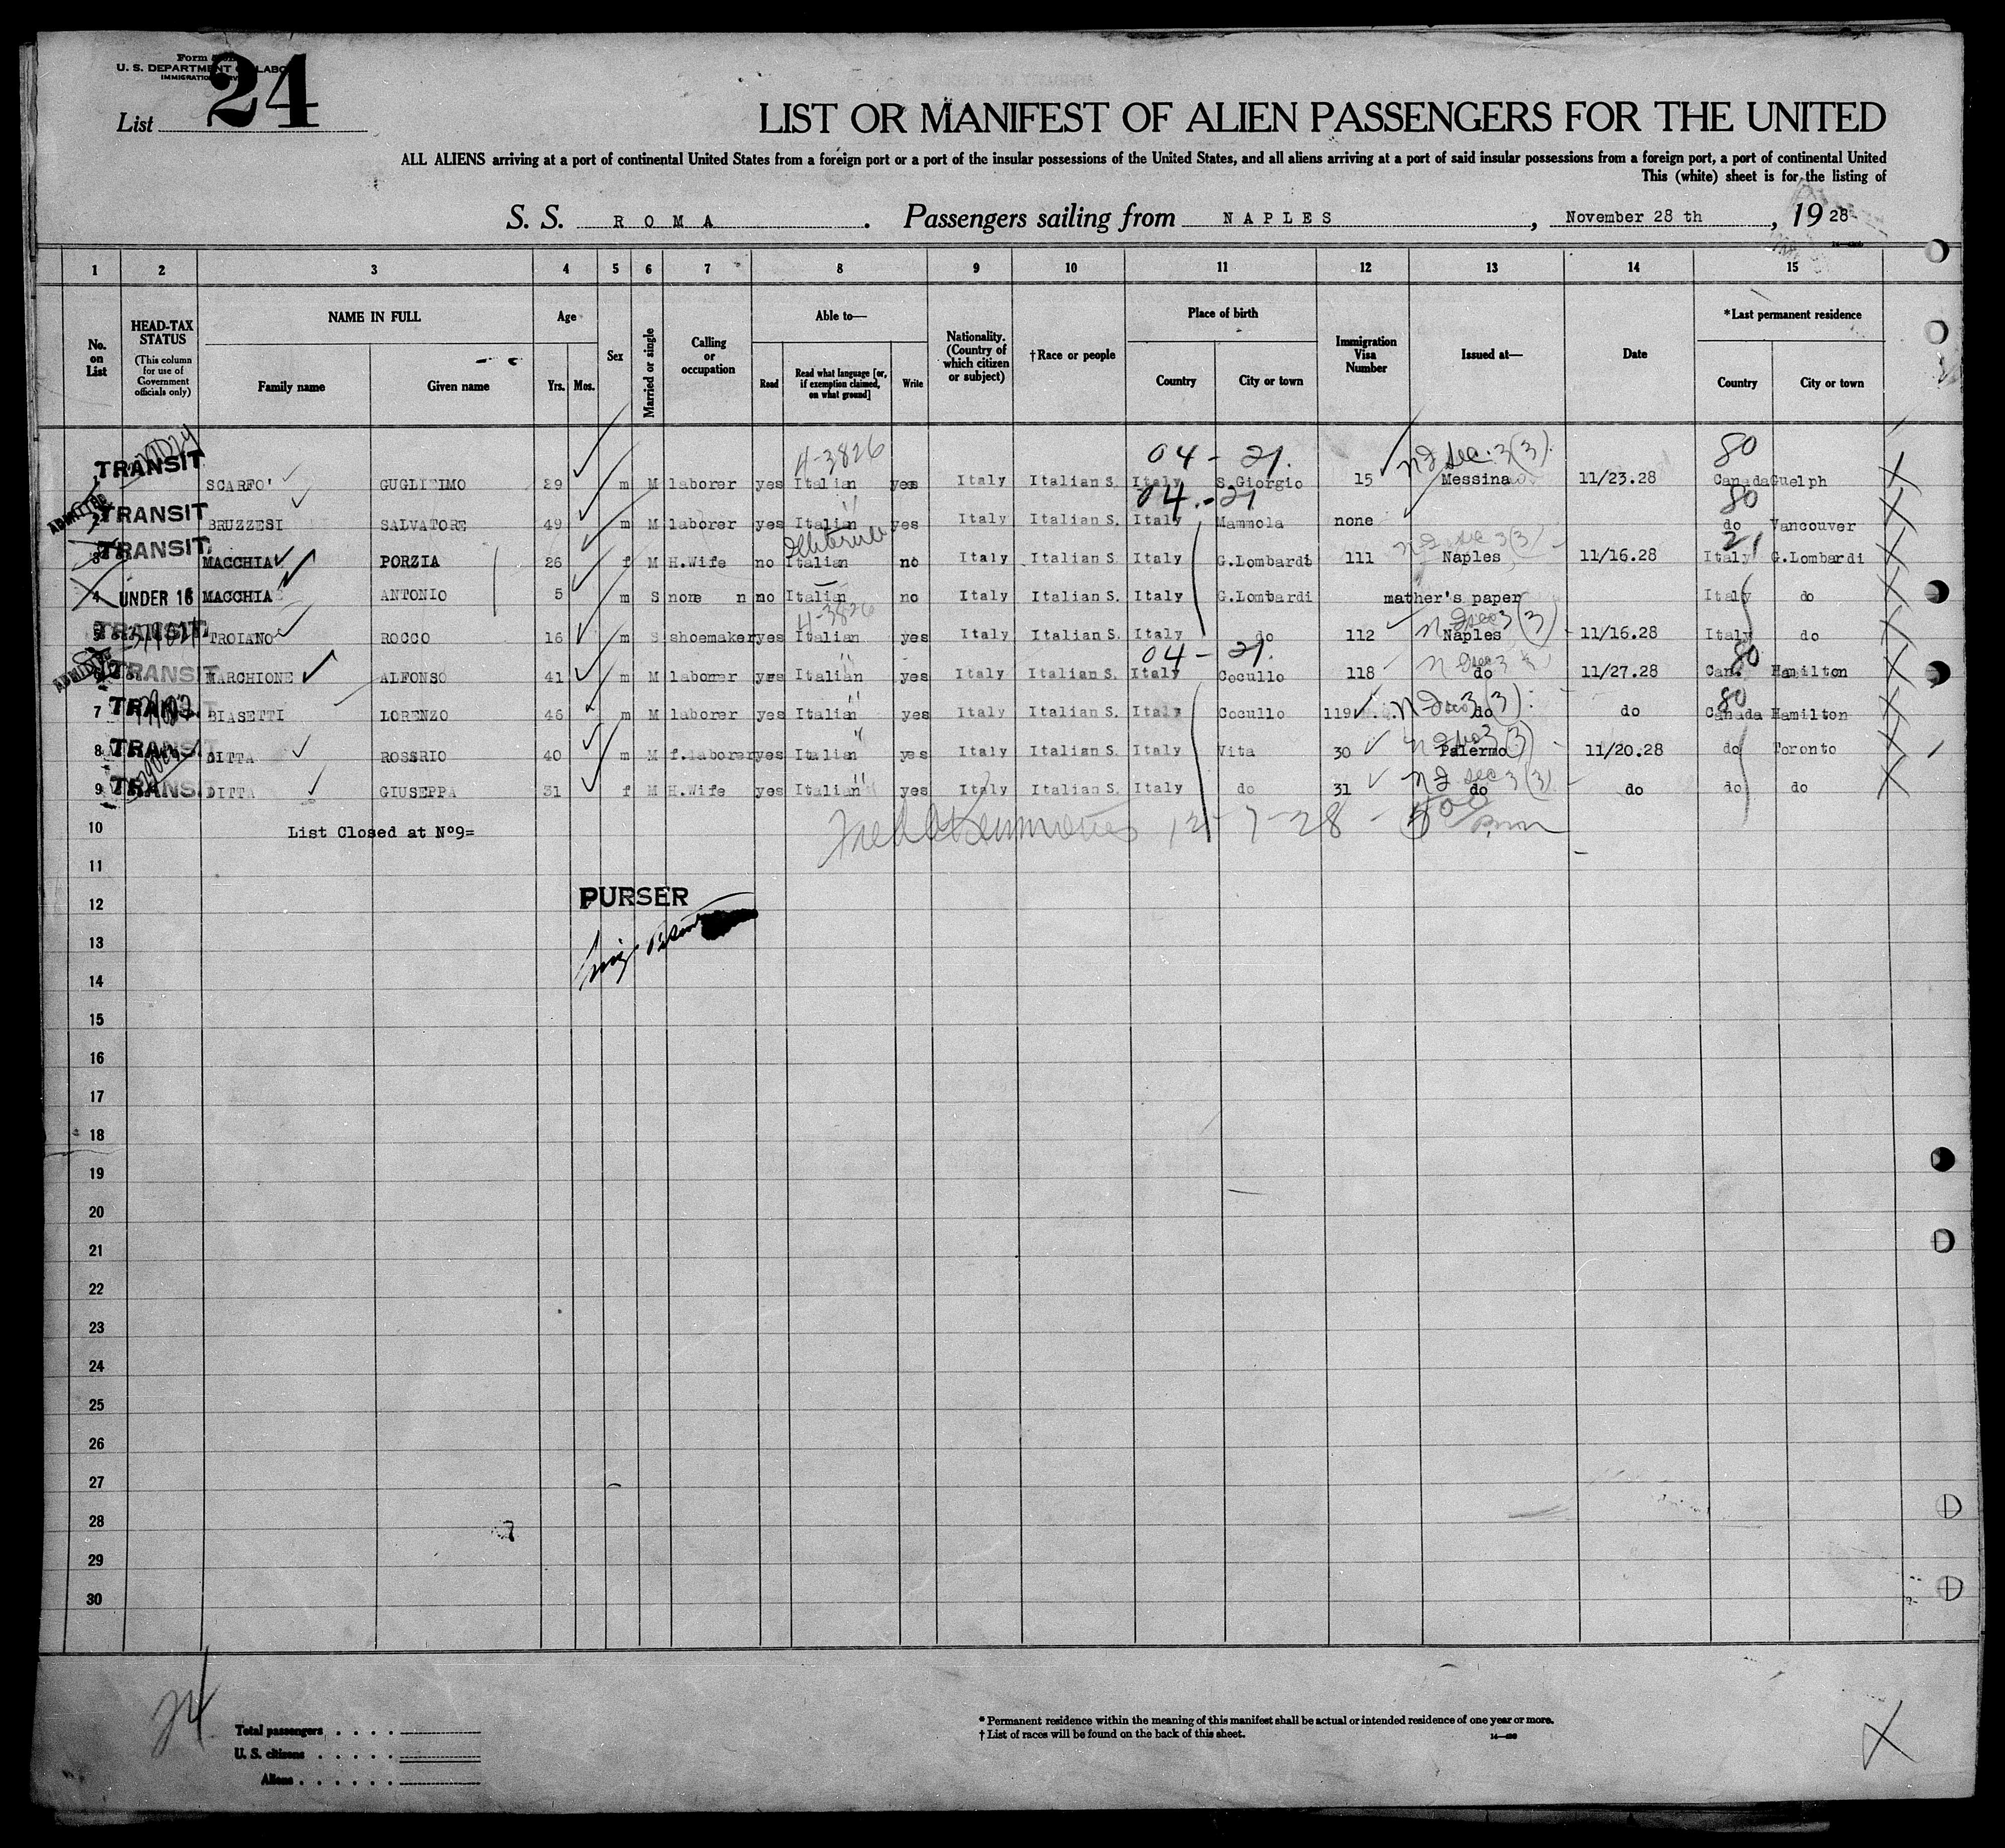 U. S. DEPARTMENT OF LABOR
List 24
LIST OR MANIFEST OF ALIEN PASSENGERS FOR THE UNITED
ALL ALIENS arriving at a port of continental United States from a foreign port or a port of the insular possessions of the United States, and all aliens arriving at a port of said insular possessions from a foreign port, a port of continental United
This (white) sheet is for the listing of
S. S. ROMA. Passengers sailing from NAPLES, November 28 th, 1928
1 2 3 4 5 6 7 8 9 10 11 12 13 14 15
No. on List
HEAD-TAX STATUS (This column for use of Government officials only)
NAME IN FULL Family name Given name
Age Yrs. Mos.
Sex
Married or single
Calling or occupation
Able to— Read Read what language [or, if exemption claimed, on what ground] Write
Nationality. (Country of which citizen or subject)
†Race or people
Place of birth Country City or town
Immigration Visa Number
Issued at—
Date
*Last permanent residence Country City or town
4-3826 04 - 21. N Q Sec. 3 (3). 80
1 TRANSIT SCARFO' GUGLIELMO 29 m M laborer yes Italian yes Italy Italian S. Italy S.Giorgio 15 Messina 11/23.28 Canada Guelph
ADMITTED " 04.-21 80
2 TRANSIT BRUZZESI SALVATORE 49 m M laborer yes Italian yes Italy Italian S. Italy Mammola none do Vancouver
Illiterate N Q Sec 3 (3) 21
3 TRANSIT MACCHIA PORZIA 26 f M H.Wife no Italian no Italy Italian S. Italy G.Lombardi 111 Naples 11/16.28 Italy G.Lombardi
4 UNDER 16 MACCHIA ANTONIO 5 m S none n no Italian no Italy Italian S. Italy G.Lombardi mather's paper Italy do
4-3826 N Q Sec 3 (3)
5 TRANSIT TROIANO ROCCO 16 m S shoemaker yes Italian yes Italy Italian S. Italy do 112 Naples 11/16.28 Italy do
ADMITTED " 04 - 21. N Q Sec 3 80
6 TRANSIT MARCHIONE ALFONSO 41 m M laborer yes Italian yes Italy Italian S. Italy Cocullo 118 do 11/27.28 Can. Hamilton
" N Q Sec 3 (3). 80
7 TRANSIT BIASETTI LORENZO 46 m M laborer yes Italian yes Italy Italian S. Italy Cocullo 119 do do Canada Hamilton
" N Q Sec 3 (3)
8 TRANSIT DITTA ROSSRIO 40 m M f.laborer yes Italian yes Italy Italian S. Italy Vita 30 Palermo 11/20.28 do Toronto
" N Q Sec 3 (3)
9 TRANSIT DITTA GIUSEPPA 31 f M H.Wife yes Italian yes Italy Italian S. Italy do 31 do do do do
10 List Closed at Nº9= 12-7-28 - 500 pm
11
12 PURSER
13
14
15
16
17
18
19
20
21
22
23
24
25
26
27
28
29
30
24
Total passengers
U. S. citizens
Aliens
* Permanent residence within the meaning of this manifest shall be actual or intended residence of one year or more.
† List of races will be found on the back of this sheet.